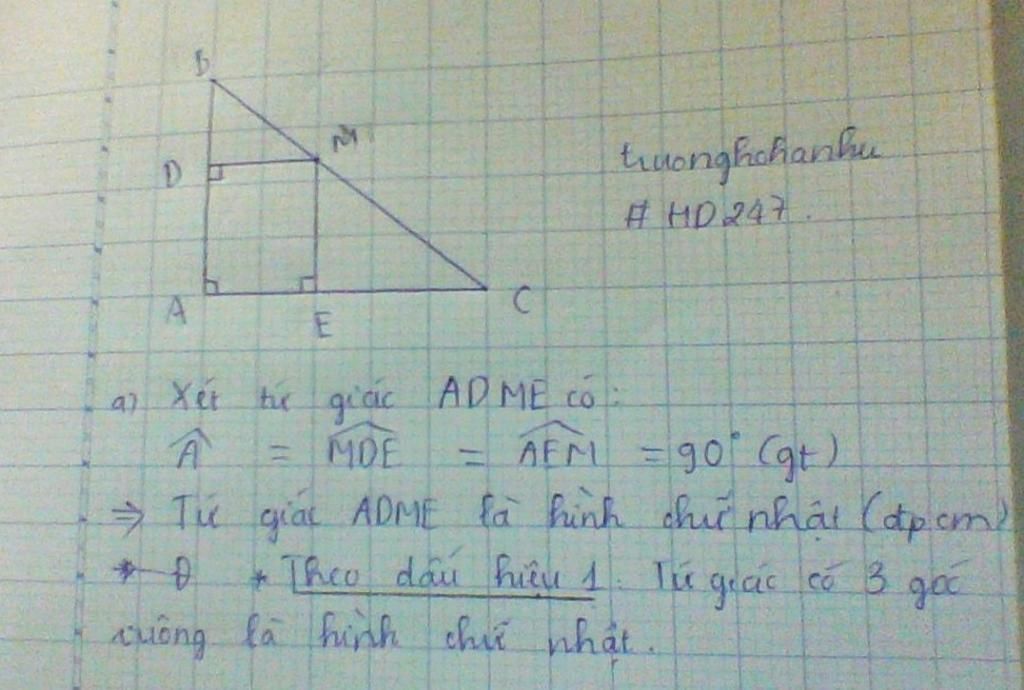 B
M
D
truonghohanhu
# HD247.
A
E
C
a) Xét tứ giác ADME có:
Â = MDE = AEM = 90° (gt)
⇒ Tứ giác ADME là hình chữ nhật (đpcm)
* Theo dấu hiệu 1. Tứ giác có 3 góc
vuông là hình chữ nhật.